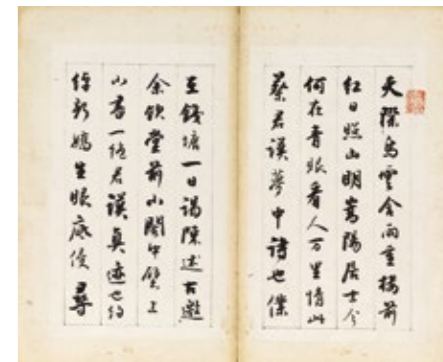 天際烏雲含雨重樓前
紅日照山明嵩陽居士今
何在青眼看人万里情此
蔡君謨夢中詩也僕
在錢塘一日謁陳述古邀
余飲堂前小閣中壁上
小書一絕君謨真迹也約
綽新嬌生眼底侵尋